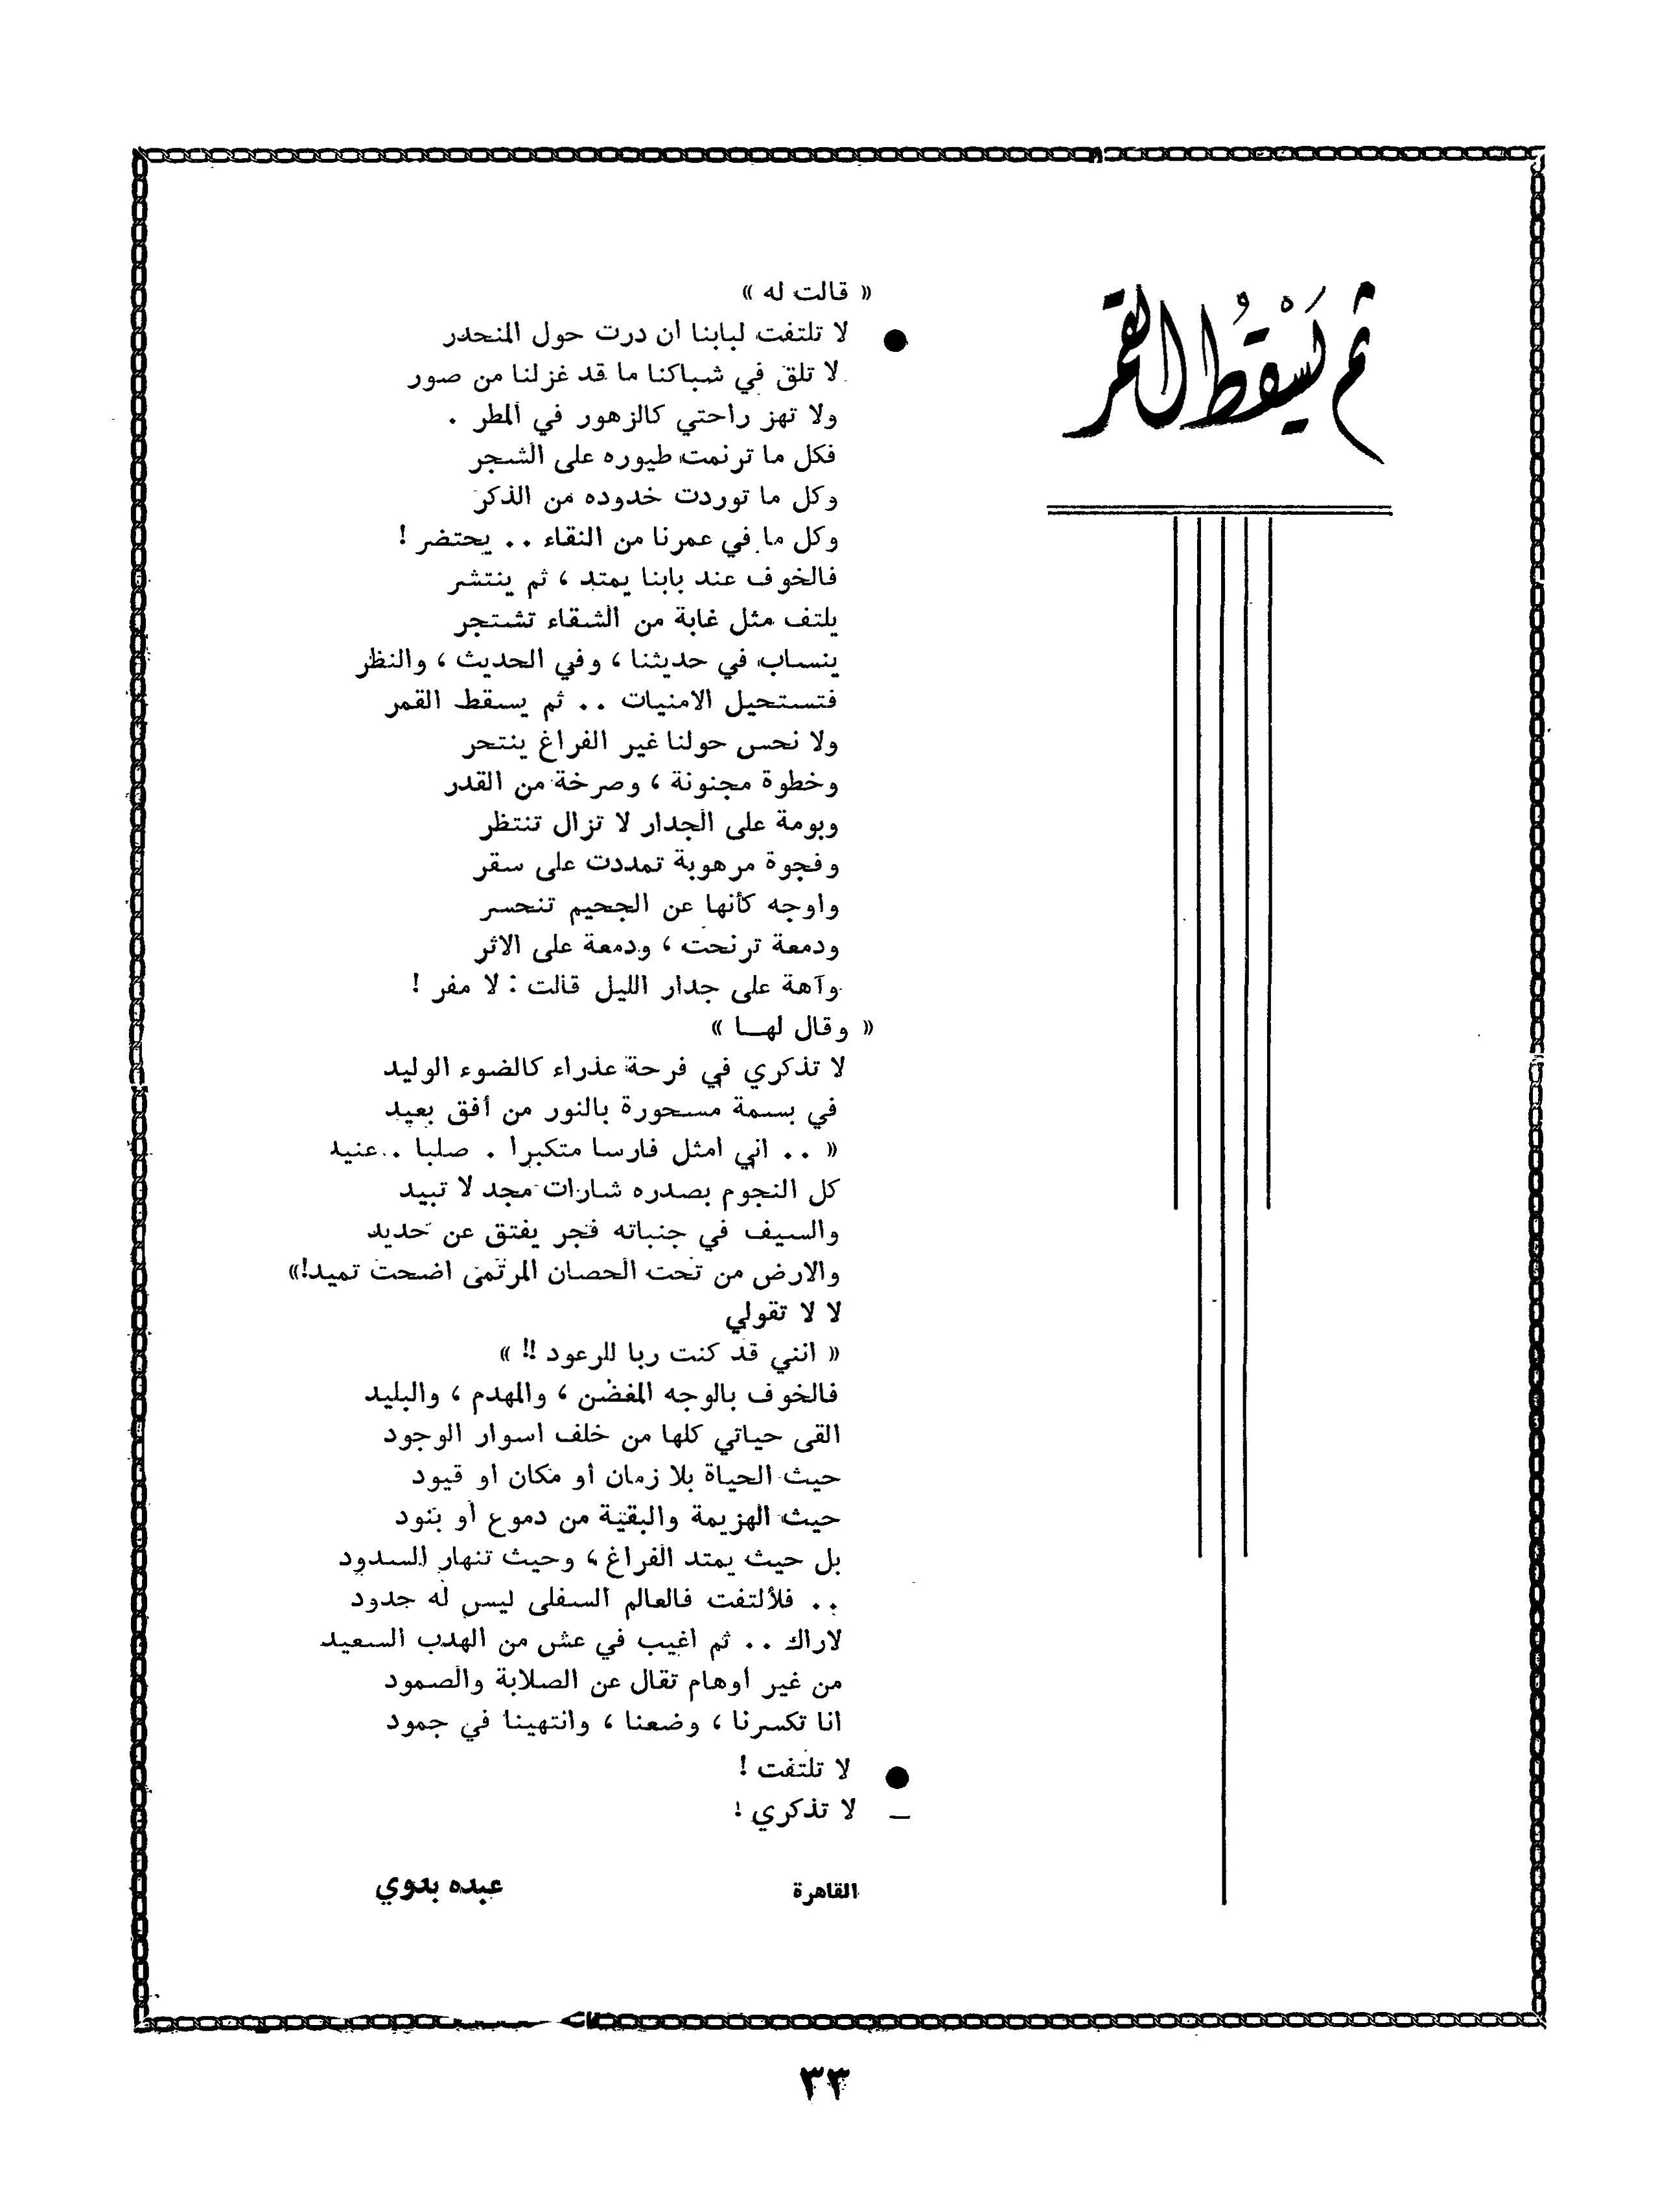 ثم يَسْقُطُ القمر
« قالت له »
● لا تلتفت لبابنا ان درت حول المنحدر
لا تلق في شباكنا ما قد غزلنا من صور
ولا تهز راحتي كالزهور في المطر .
فكل ما ترنمت طيوره على الشجر
وكل ما توردت خدوده من الذكر
وكل ما في عمرنا من النقاء .. يحتضر !
فالخوف عند بابنا يمتد ، ثم ينتشر
يلتف مثل غابة من الشقاء تشتجر
ينساب في حديثنا ، وفي الحديث ، والنظر
فتستحيل الامنيات .. ثم يسقط القمر
ولا نحس حولنا غير الفراغ ينتحر
وخطوة مجنونة ، وصرخة من القدر
وبومة على الجدار لا تزال تنتظر
وفجوة مرهوبة تمددت على سقر
واوجه كأنها عن الجحيم تنحسر
ودمعة ترنحت ، ودمعة على الاثر
وآهة على جدار الليل قالت : لا مفر !
« وقال لهـا »
لا تذكري في فرحة عذراء كالضوء الوليد
في بسمة مسحورة بالنور من أفق بعيد
« .. اني امثل فارسا متكبرا . صلبا .. عنيد
كل النجوم بصدره شارات مجد لا تبيد
والسيف في جنباته فجر يفتق عن حديد
والارض من تحت الحصان المرتمى اضحت تميد!»
لا لا تقولي
« انني قد كنت ربا للرعود !! »
فالخوف بالوجه المغضن ، والمهدم ، والبليد
القى حياتي كلها من خلف اسوار الوجود
حيث الحياة بلا زمان او مكان او قيود
حيث الهزيمة والبقية من دموع او بنود
بل حيث يمتد الفراغ ، وحيث تنهار السدود
.. فلألتفت فالعالم السفلى ليس له حدود
لاراك .. ثم اغيب في عش من الهدب السعيد
من غير اوهام تقال عن الصلابة والصمود
انا تكسرنا ، وضعنا ، وانتهينا في جمود
● لا تلتفت !
— لا تذكري !
القاهرة عبده بدوي
٣٣